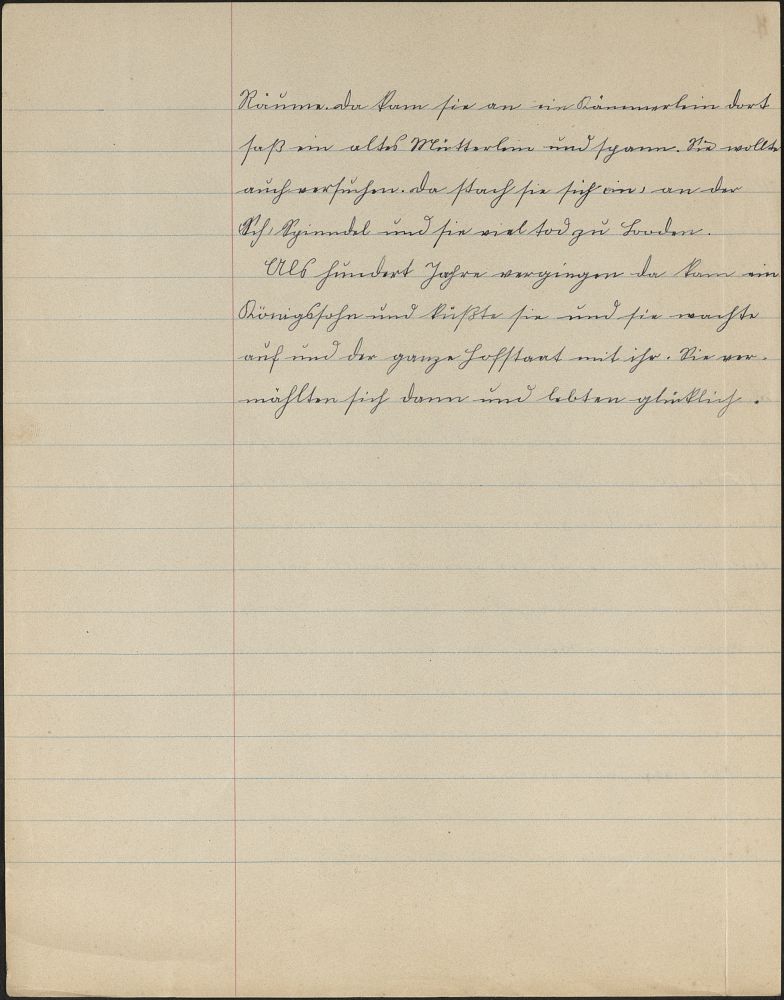 Räume. Da kam sie an ein Kämmerlein dort
saß ein altes Mütterlein und spann. Sie wollte
auch versuchen. Da stach sie sich ein, an der
Sch, Spinndel und sie viel tod zu Booden.
Als hundert Jahre vergingen da kam ein
Königssohn und küßte sie und sie wachte
auf und der ganze Hofstaat mit ihr. Sie ver-
mählten sich dann und lebten glücklich.